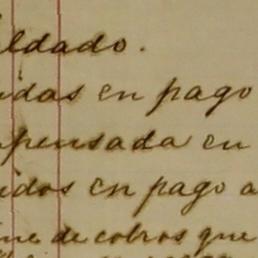 aldado.
idas en pago
pensada en
idos en pago a
me de cobros que